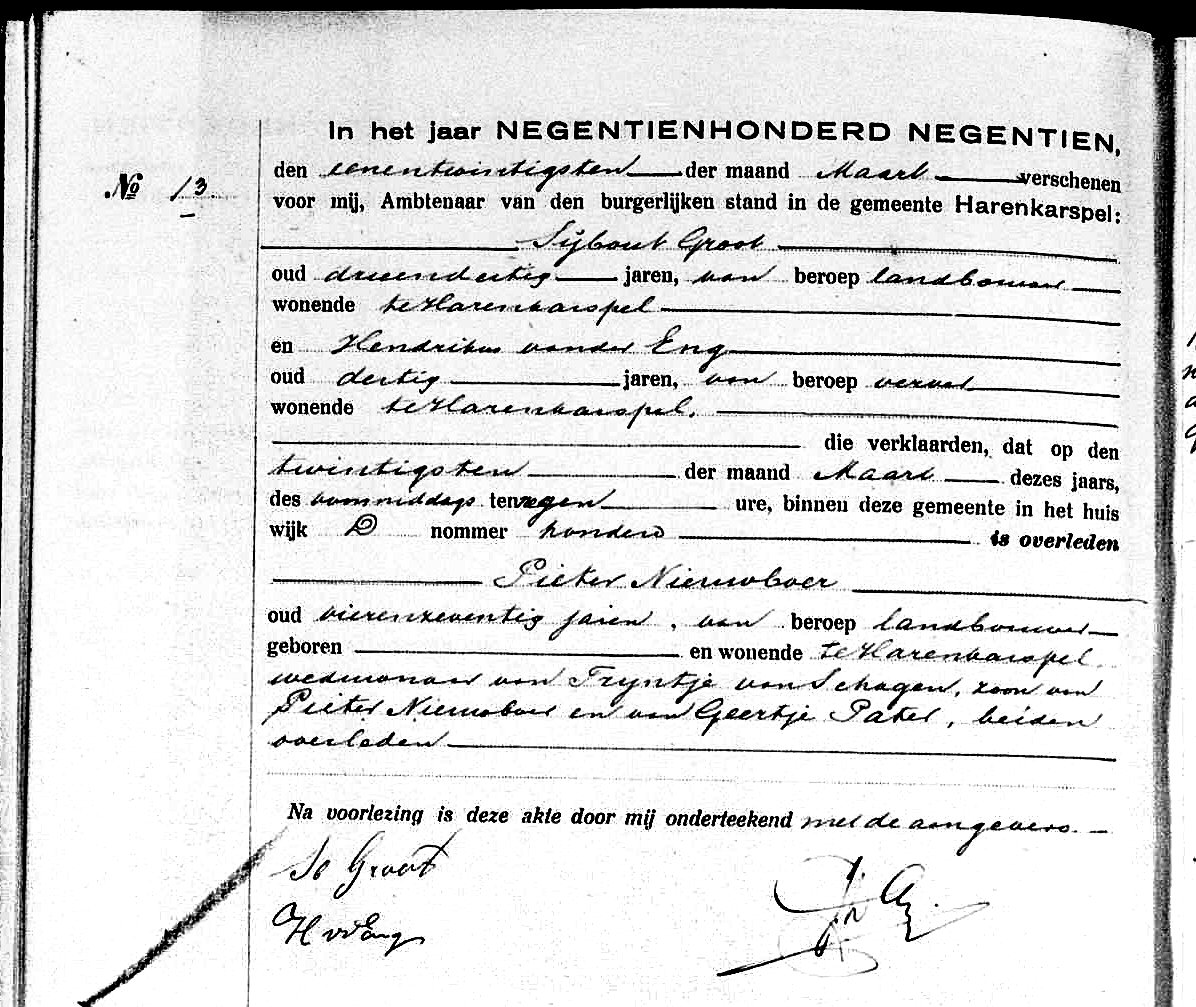 In het jaar NEGENTIENHONDERD NEGENTIEN,
No 13.
den eenentwintigsten der maand Maart verschenen
voor mij, Ambtenaar van den burgerlijken stand in de gemeente Harenkarspel:
Sijbout Groot
oud drieendertig jaren, van beroep landbouwer
wonende te Harenkarspel
en Hendrikus van der Eng
oud dertig jaren, van beroep verver
wonende te Harenkarspel.
die verklaarden, dat op den
twintigsten der maand Maart dezes jaars,
des voormiddags ten negen ure, binnen deze gemeente in het huis
wijk D nommer honderd is overleden
Pieter Nieuwboer
oud vierenzeventig jaren, van beroep landbouwer
geboren en wonende te Harenkarspel.
weduwnaar van Tryntje van Schagen, zoon van
Pieter Nieuwboer en van Geertje Pater, beiden
overleden
Na voorlezing is deze akte door mij onderteekend met de aangevers.
Sb Groot
H vd Eng